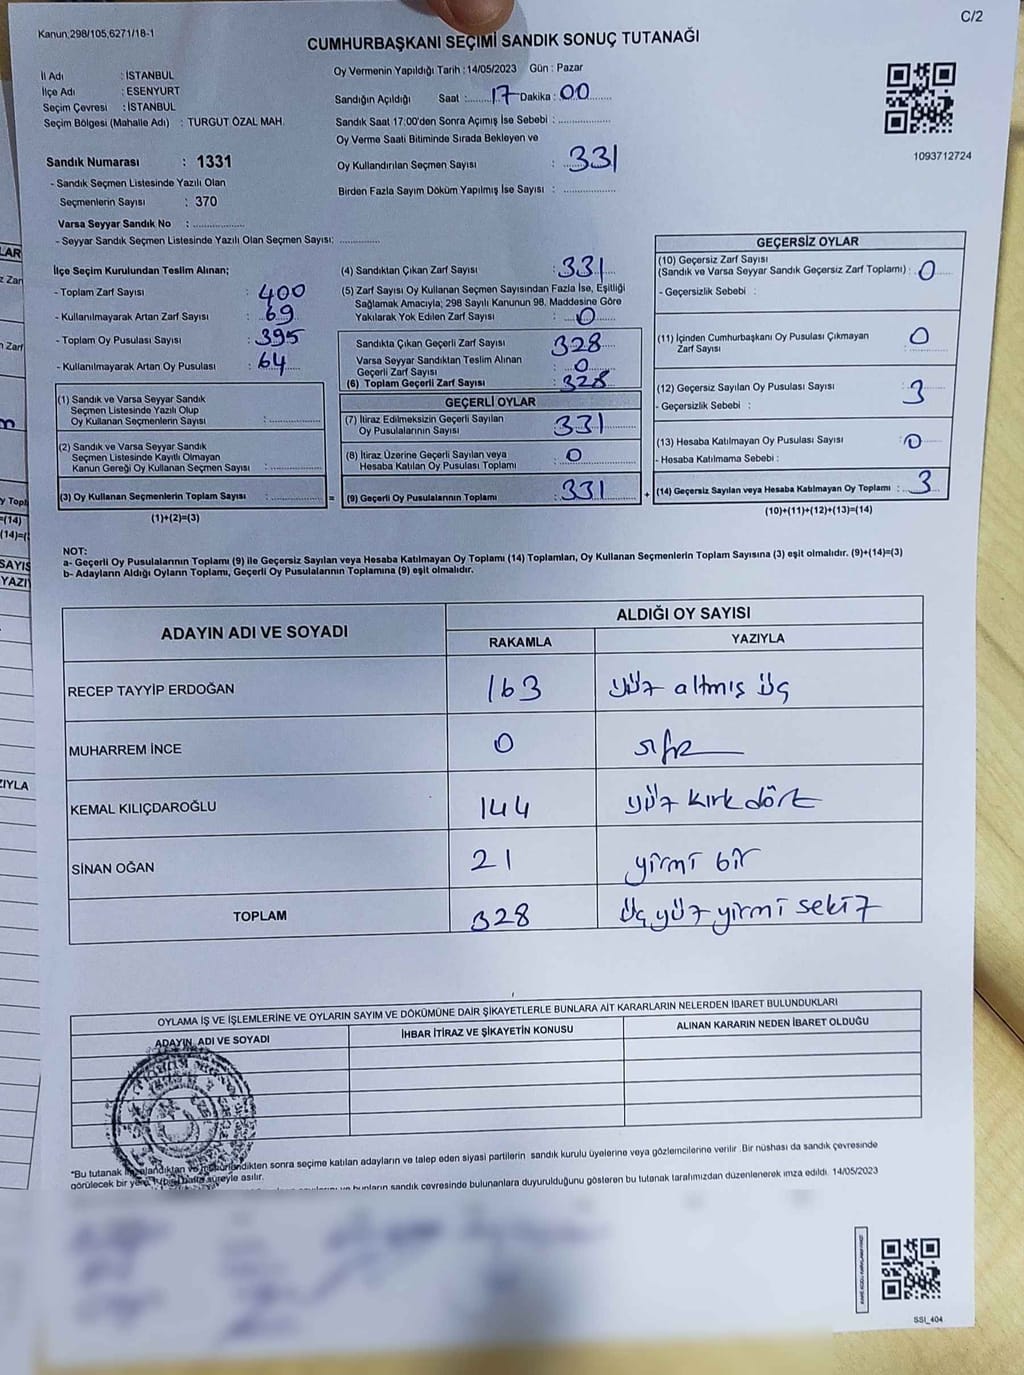 Kanun;298/105,6271/18-1
C/2
CUMHURBAŞKANI SEÇİMİ SANDIK SONUÇ TUTANAĞI
İl Adı : İSTANBUL
İlçe Adı : ESENYURT
Seçim Çevresi : İSTANBUL
Seçim Bölgesi (Mahalle Adı) : TURGUT ÖZAL MAH.
Sandık Numarası : 1331
- Sandık Seçmen Listesinde Yazılı Olan
Seçmenlerin Sayısı : 370
Varsa Seyyar Sandık No :
- Seyyar Sandık Seçmen Listesinde Yazılı Olan Seçmen Sayısı:
Oy Vermenin Yapıldığı Tarih : 14/05/2023 Gün : Pazar
Sandığın Açıldığı Saat : 17 Dakika : 00
Sandık Saat 17:00'den Sonra Açımış İse Sebebi :
Oy Verme Saati Bitiminde Sırada Bekleyen ve
Oy Kullandırılan Seçmen Sayısı : 331
Birden Fazla Sayım Döküm Yapılmış İse Sayısı :
1093712724
İlçe Seçim Kurulundan Teslim Alınan;
- Toplam Zarf Sayısı : 400
- Kullanılmayarak Artan Zarf Sayısı : 69
- Toplam Oy Pusulası Sayısı : 395
- Kullanılmayarak Artan Oy Pusulası : 64
(1) Sandık ve Varsa Seyyar Sandık
Seçmen Listesinde Yazılı Olup
Oy Kullanan Seçmenlerin Sayısı :
(2) Sandık ve Varsa Seyyar Sandık
Seçmen Listesinde Kayıtlı Olmayan
Kanun Gereği Oy Kullanan Seçmen Sayısı :
(3) Oy Kullanan Seçmenlerin Toplam Sayısı : =
(1)+(2)=(3)
(4) Sandıktan Çıkan Zarf Sayısı : 331
(5) Zarf Sayısı Oy Kullanan Seçmen Sayısından Fazla İse, Eşitliği
Sağlamak Amacıyla; 298 Sayılı Kanunun 98. Maddesine Göre
Yakılarak Yok Edilen Zarf Sayısı : 0
Sandıkta Çıkan Geçerli Zarf Sayısı 328
Varsa Seyyar Sandıktan Teslim Alınan
Geçerli Zarf Sayısı : 0
(6) Toplam Geçerli Zarf Sayısı : 328
GEÇERLİ OYLAR
(7) İtiraz Edilmeksizin Geçerli Sayılan
Oy Pusulalarının Sayısı : 331
(8) İtiraz Üzerine Geçerli Sayılan veya
Hesaba Katılan Oy Pusulası Toplamı : 0
(9) Geçerli Oy Pusulalarının Toplamı : 331 +
GEÇERSİZ OYLAR
(10) Geçersiz Zarf Sayısı
(Sandık ve Varsa Seyyar Sandık Geçersiz Zarf Toplamı) : 0
- Geçersizlik Sebebi :
(11) İçinden Cumhurbaşkanı Oy Pusulası Çıkmayan
Zarf Sayısı : 0
(12) Geçersiz Sayılan Oy Pusulası Sayısı : 3
- Geçersizlik Sebebi :
(13) Hesaba Katılmayan Oy Pusulası Sayısı : 0
- Hesaba Katılmama Sebebi :
(14) Geçersiz Sayılan veya Hesaba Katılmayan Oy Toplamı : 3
(10)+(11)+(12)+(13)=(14)
NOT:
a- Geçerli Oy Pusulalarının Toplamı (9) ile Geçersiz Sayılan veya Hesaba Katılmayan Oy Toplamı (14) Toplamları, Oy Kullanan Seçmenlerin Toplam Sayısına (3) eşit olmalıdır. (9)+(14)=(3)
b- Adayların Aldığı Oyların Toplamı, Geçerli Oy Pusulalarının Toplamına (9) eşit olmalıdır.
ADAYIN ADI VE SOYADI
ALDIĞI OY SAYISI
RAKAMLA YAZIYLA
RECEP TAYYİP ERDOĞAN 163 yüz altmış üç
MUHARREM İNCE 0 sıfır
KEMAL KILIÇDAROĞLU 144 yüz kırk dört
SİNAN OĞAN 21 yirmi bir
TOPLAM 328 üç yüz yirmi sekiz
OYLAMA İŞ VE İŞLEMLERİNE VE OYLARIN SAYIM VE DÖKÜMÜNE DAİR ŞİKAYETLERLE BUNLARA AİT KARARLARIN NELERDEN İBARET BULUNDUKLARI
ADAYIN ADI VE SOYADI İHBAR İTİRAZ VE ŞİKAYETİN KONUSU ALINAN KARARIN NEDEN İBARET OLDUĞU
"Bu tutanak sonra seçime katılan adayların ve talep eden siyasi partilerin sandık kurulu üyelerine veya gözlemcilerine verilir. Bir nüshası da sandık çevresinde
görülecek bir süreyle asılır.
bunların sandık çevresinde bulunanlara duyurulduğunu gösteren bu tutanak tarafımızdan düzenlenerek imza edildi. 14/05/2023
SSI_404